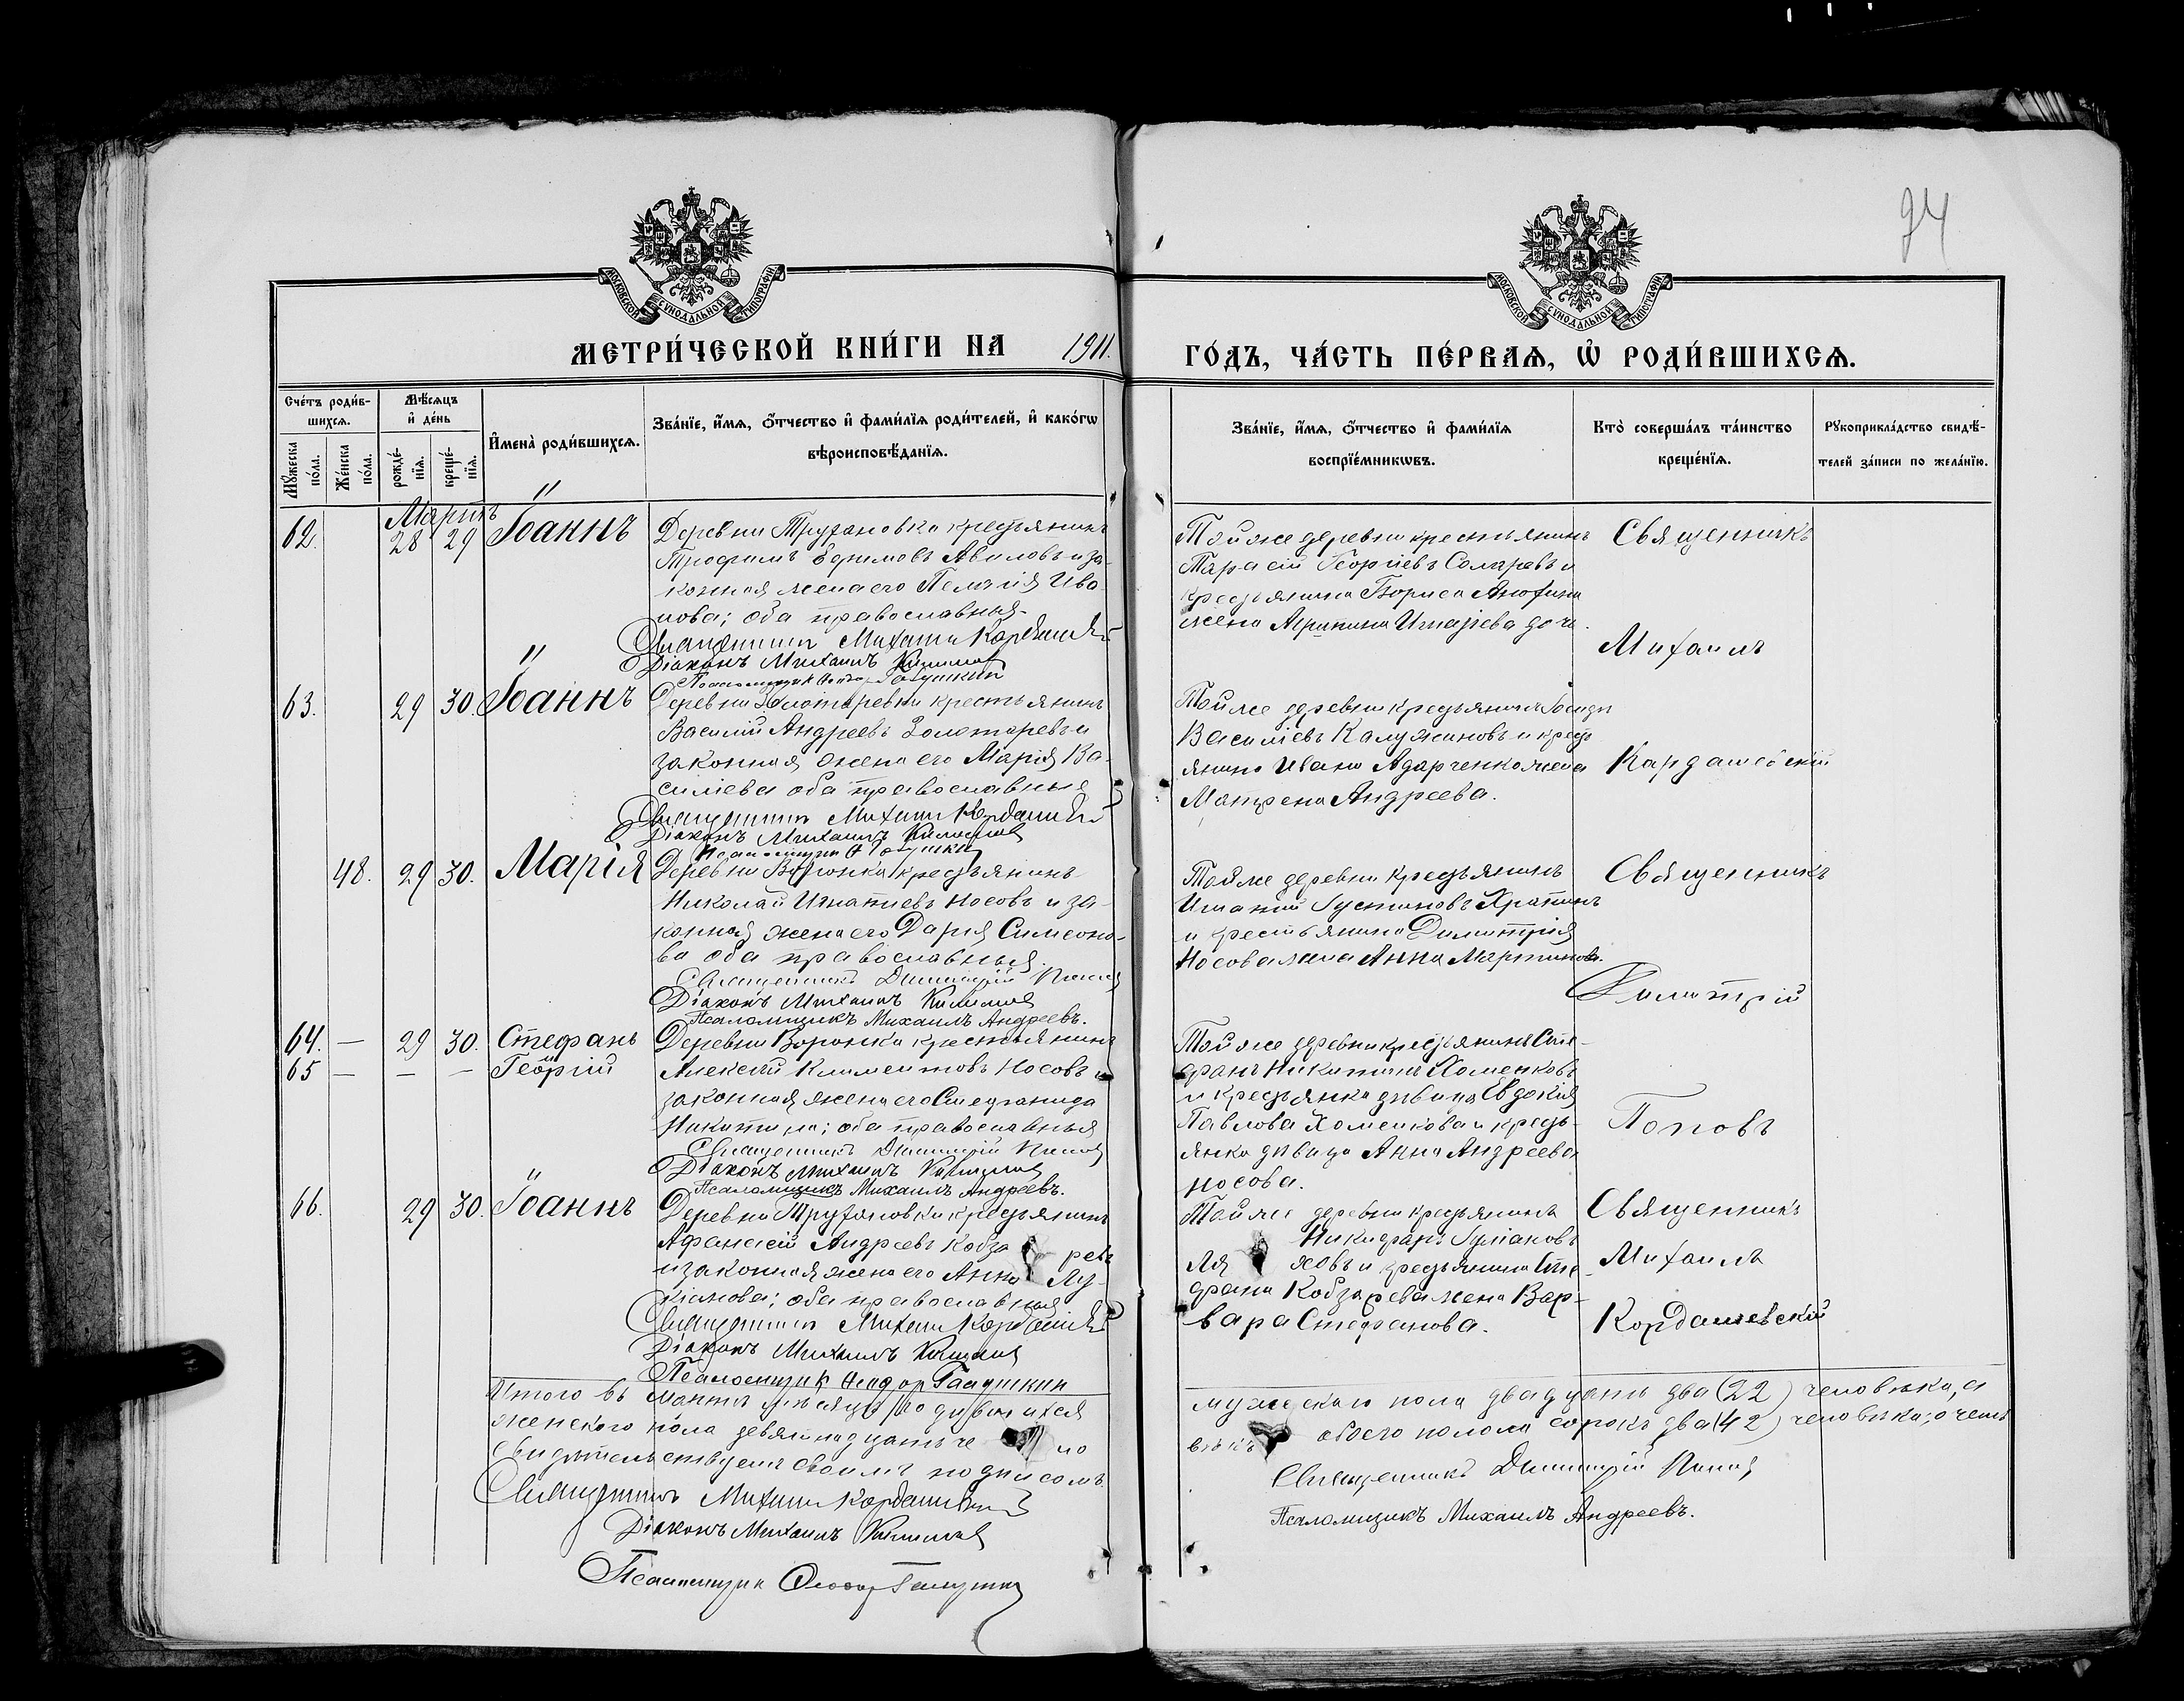 94
МОСКОВСКОЙ СѴНОДАЛЬНОЙ ТИПОГРАФІИ
МОСКОВСКОЙ СѴНОДАЛЬНОЙ ТИПОГРАФІИ
МЕТРИ́ЧЕСКОЙ КНИ́ГИ НА 1911.
ГО́ДЪ, ЧА́СТЬ ПЕ́РВАѦ, Ѡ҆ РОДИ́ВШИХСѦ.
Сче́тъ роди́в-
шихсѧ.
Мѣ́сѧцъ
и҆ де́нь
Мꙋ́жеска по́ла.
Же́нска по́ла.
рожде́-нїѧ.
креще́-нїѧ.
И҆мена̀ роди́вшихсѧ.
Зва́нїе, и҆́мѧ, ѻ҆́тчество и҆ фами́лїѧ роди́телей, и҆ како́гѡ
вѣроисповѣ́данїѧ.
Зва́нїе, и҆́мѧ, ѻ҆́тчество и҆ фами́лїѧ
воспрїе́мникѡвъ.
Кто̀ соверша́лъ та́инство
креще́нїѧ.
Рꙋкоприкла́дство свидѣ́-
телей за́писи по жела́нїю.
Мартъ
62. 28 29 Іоаннъ
Деревни Труфановки крестьянинъ
Трофимъ Ефимовъ Авиловъ и за-
конная жена его Пелагія Ива
нова; оба православныя.
Священникъ Михаилъ Кардашевскій
Діаконъ Михаилъ
Той же деревни крестьянинъ
Тарасій Георгіевъ и
крестьянина Бориса Анохина
жена Агрипина Игнатьева
Священникъ
Михаилъ
63. 29 30. Іоаннъ
Деревни Золотаревки крестьянинъ
Василій Андреевъ Золотаревъ и
законная жена его Марія Ва-
сильева оба православные
Священникъ Михаилъ Кардашевскій
Діаконъ Михаилъ
Той же деревни крестьянинъ
Василіевъ Калужиновъ и кресть
янина Ивана жена
Матрена Андреева.
Кардашевскій
48. 29 30. Марія
Деревни Воронки крестьянинъ
Николай Игнатіевъ Носовъ и за-
конная жена его Дарія Симеоно-
ва оба православныя.
Священникъ Димитрій Поповъ
Діаконъ Михаилъ
Псаломщикъ Михаилъ Андреевъ.
Той же деревни крестьянинъ
Игнатій Іустиновъ
и крестьянина Димитрія
Носова жена Анна Мартинова.
Священникъ
Димитрій
64. — 29 30. Стефанъ
65 — — — и Георгій
Деревни Воронки крестьянинъ
Алексій Климентовъ Носовъ и
законная жена его Стефанида
Никитина; оба православныя
Священникъ Димитрій Поповъ
Діаконъ Михаилъ
Псаломщикъ Михаилъ Андреевъ.
Той же деревни крестьянинъ Сте-
фанъ Никитинъ Хоменковъ
и крестьянка дѣвица Евдокія
Павлова Хоменкова и кресть-
янка дѣвица Анна Андреева
Носова.
Поповъ
66. 29 30. Іоаннъ
Деревни Труфановки крестьянинъ
Афанасій Андреевъ Кобза ревъ
и законная жена его Анна Лу-
кіанова; оба православныя
Священникъ Михаилъ Кардашевскій
Діаконъ Михаилъ
Псаломщикъ Галушкин
Той же деревни крестьянинъ
Никифоръ Іуліановъ
Ля ховъ и крестьянина Сте-
фана Кобзарева жена Вар-
вара Стефанова.
Священникъ
Михаилъ
Кордашевскій
Итого въ Мартѣ мѣсяцѣ родившихся
мужескаго пола двадцать два (22) человѣка, а
женскаго пола девятнадцать че ло
вѣкъ обоего пола сорокъ два (42) человѣка; о чемъ
свидѣтельствуемъ своимъ подписомъ
Священникъ Михаилъ Кардашевскій
Діаконъ Михаилъ
Псаломщик
Священникъ Димитрій Поповъ
Псаломщикъ Михаилъ Андреевъ.